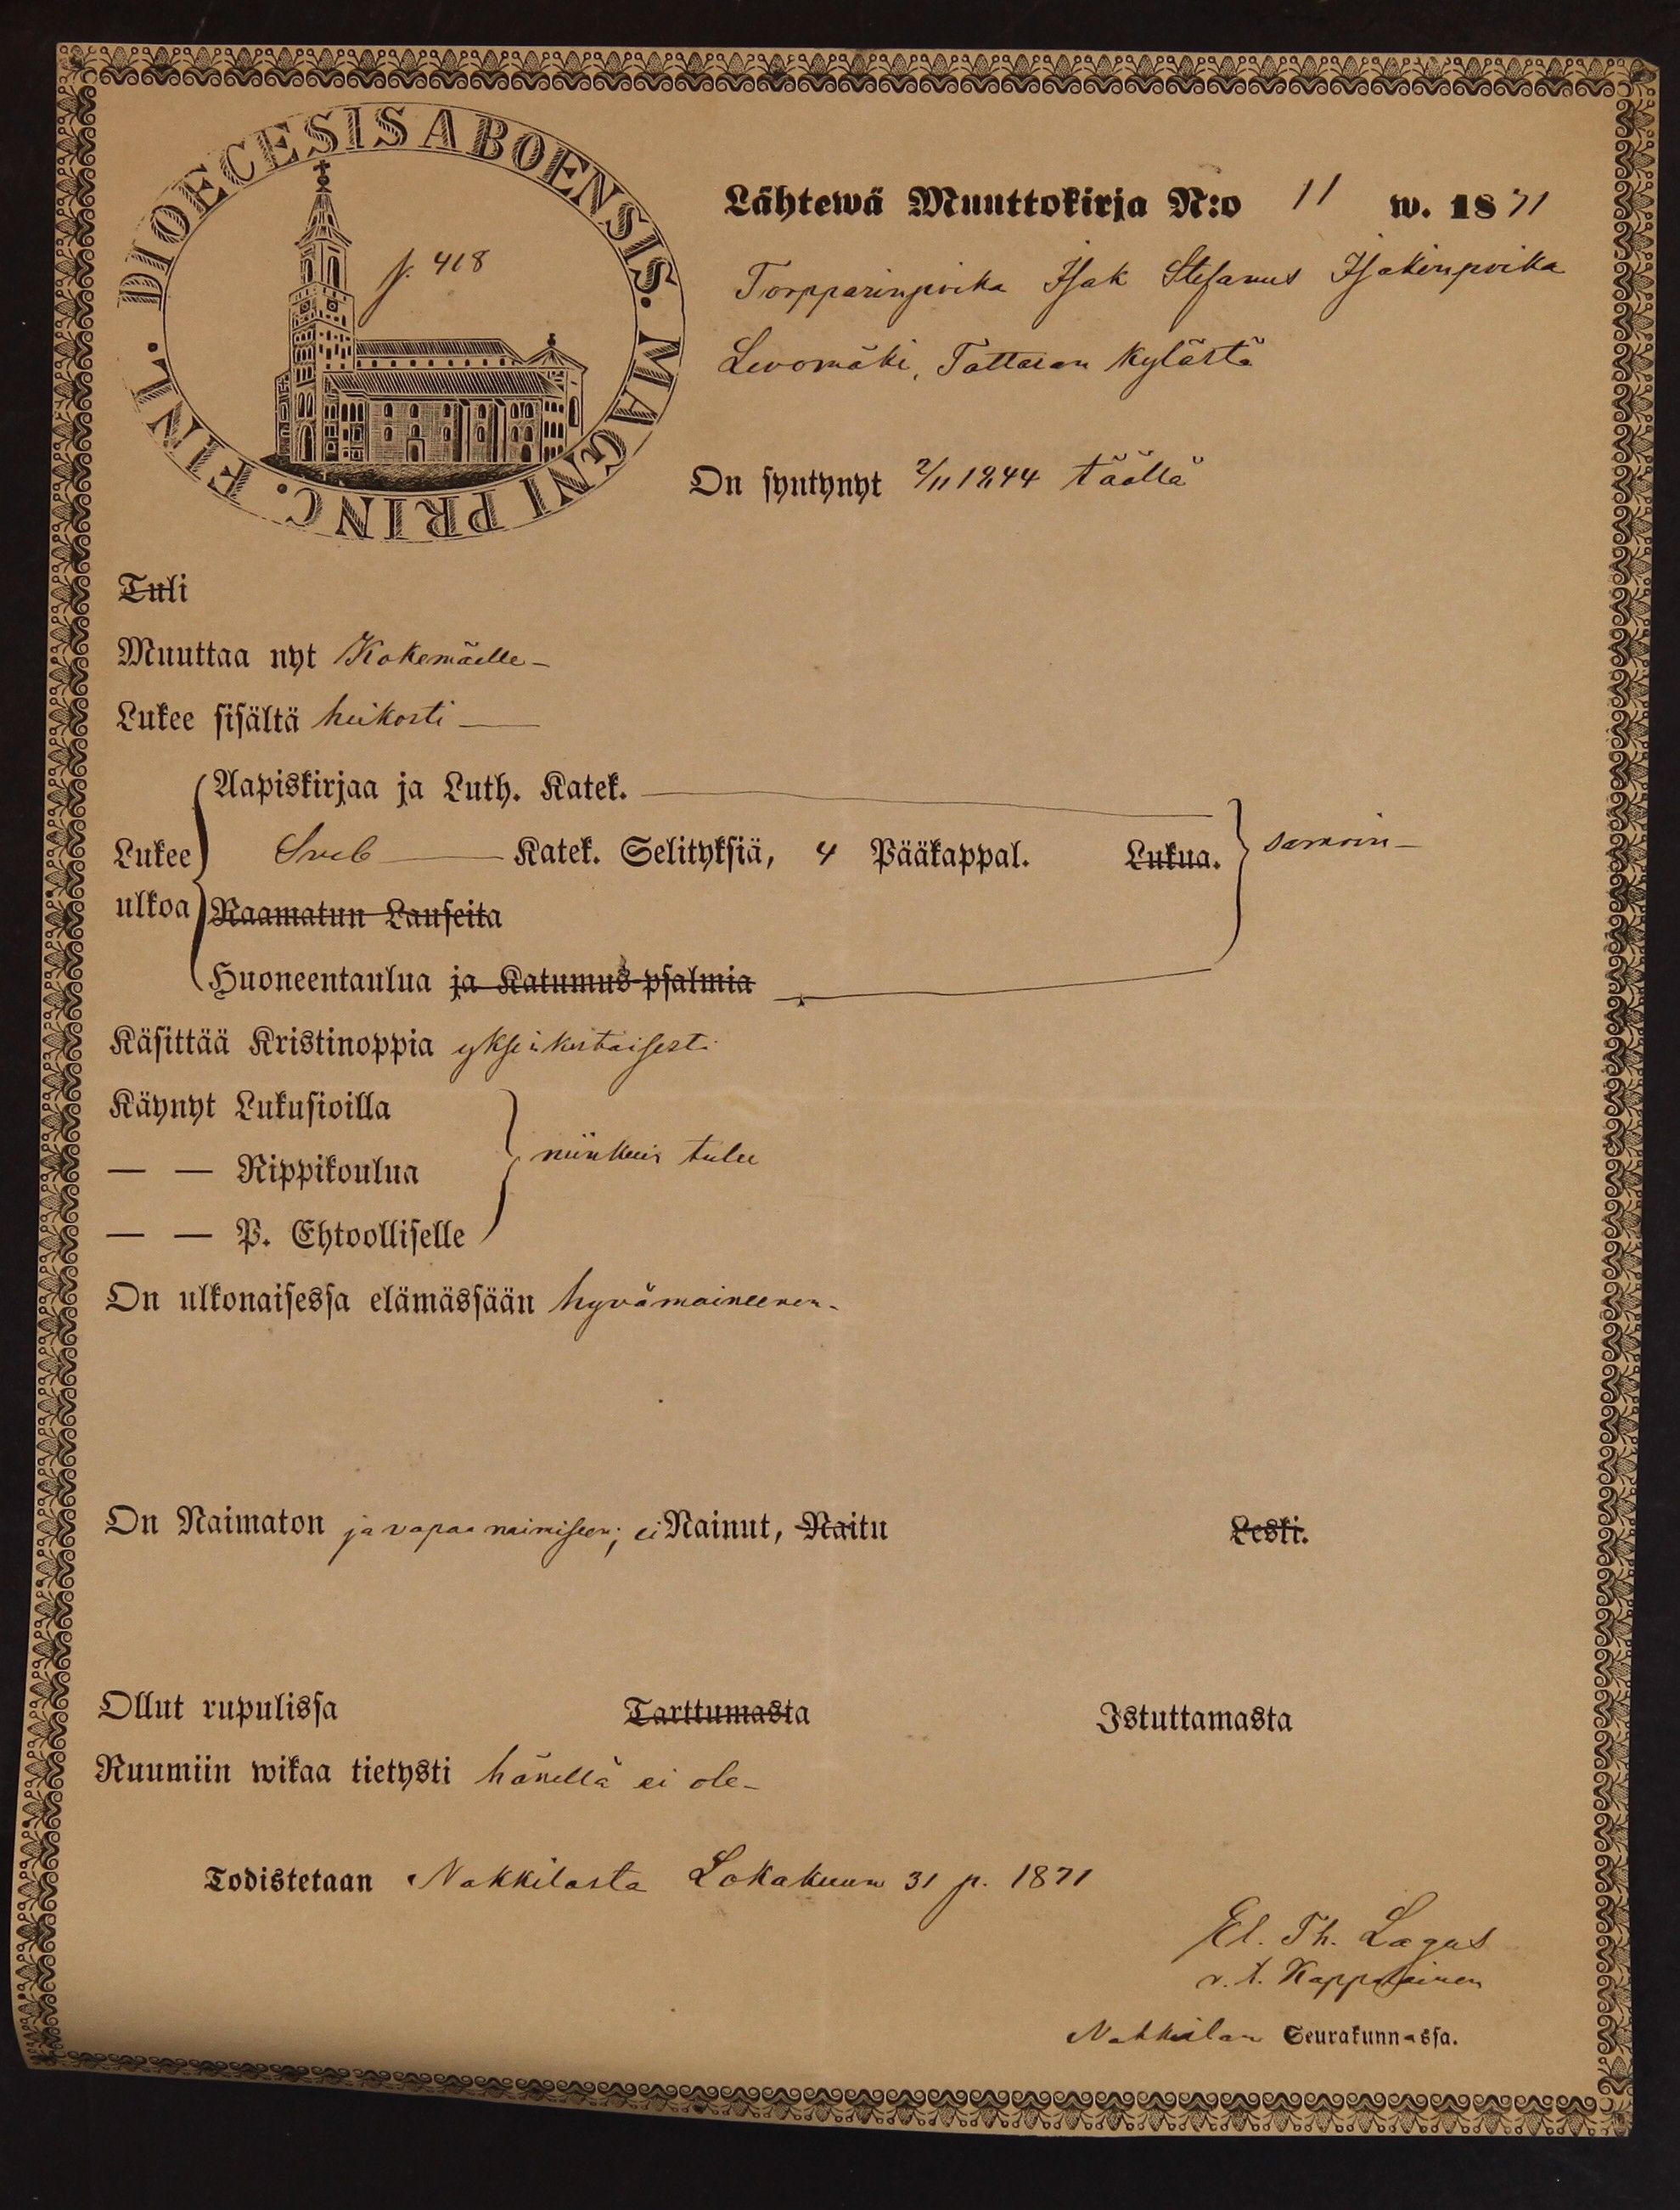 DIOECESIS ABOENSIS. MAGNI PRINC. FINL.
p. 418
Lähtewä Muuttokirja N:o 11 w. 1871
Torpparinpoika Isak Stefanus Isakinpoika
Levomäki, Tattaran kylästä
On syntynyt 2/11 1844 täällä
Tuli
Muuttaa nyt Kokemäelle -
Lukee sisältä heikosti -
Aapiskirjaa ja Luth. Katek.
Lukee Sveb Katek. Selityksiä, 4 Pääkappal. Lukua. samoin -
ulkoa Raamatun Lauseita
Huoneentaulua ja Katumus-psalmia
Käsittää Kristinoppia yksinkertaisesti
Käynyt Lukusioilla
— — Rippikoulua niinkuin tulee
— — P. Ehtoolliselle
On ulkonaisessa elämässään hyvämaineenen -
On Naimaton ja vapaa naimiseen; ei Nainut, Naitu Leski.
Ollut rupulissa Tarttumasta Istuttamasta
Ruumiin wikaa tietysti hänellä ei ole -
Todistetaan Nakkilasta Lokakuun 31 p. 1871
El. Th. Lagus
v. t. Kappalainen
Nakkilan Seurakunnassa.